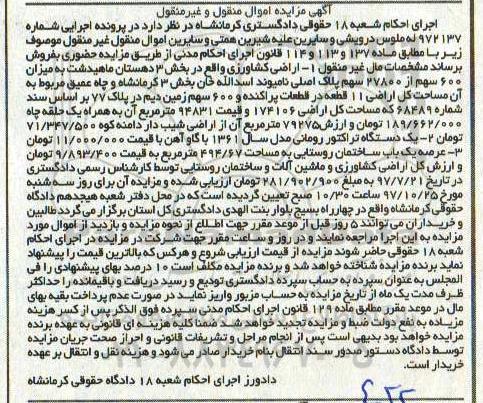 آگهی مزایده اموال منقول و غیرمنقول
اجرای احکام شعبه ۱۸ حقوقی دادگستری کرمانشاه در نظر دارد در پرونده اجرایی شماره
۹۷۲۱۳۷ له ملوس درویشی و سایرین علیه شیرین همتی و سایرین اموال منقول غیر منقول موصوف
زیر را مطابق ماده ۱۳۷ و ۱۱۳ و ۱۱۴ قانون اجرای احکام مدنی از طریق مزایده حضوری بفروش
برساند مشخصات مال غیر منقول ۱- اراضی کشاورزی واقع در بخش ۳ دهستان ماهیدشت به میزان
۶۰۰ سهم از ۲۷۸۰۰ سهم پلاک اصلی نامیوند اسدالله خان بخش ۳ کرمانشاه و چاه عمیق مربوط به
آن مساحت کل اراضی ۱۱ قطعه در قطعات پراکنده و ۶۰۰ سهم زمین دیم در پلاک ۷۷ بر اساس سند
شماره ۶۸۴۸۹ که مساحت کل اراضی ۱۷۴۱۰۶ و ارزش ۹۴۸۳۱ مترمربع آن به همراه یک حلقه چاه
۱۸۹/۶۶۲/۰۰۰ تومان و ارزش ۷۹۲۷۵ مترمربع آن از اراضی شیب دار دامنه کوه ۷۱/۳۴۷/۵۰۰
تومان ۲- یک دستگاه تراکتور رومانی مدل سال ۱۳۶۱ با گاو آهن با قیمت ۱۱/۰۰۰/۰۰۰ تومان
۳-عرصه یک باب ساختمان روستایی به مساحت ۴۹۴/۶۷ مترمربع به قیمت ۹/۸۹۳/۴۰۰ تومان
و ارزش کل اراضی کشاورزی و ماشین آلات و ساختمان روستایی توسط کارشناس رسمی دادگستری
در تاریخ ۹۷/۷/۲۱ به مبلغ ۲۸۱/۹۰۲/۹۰۰ تومان ارزیابی شده و مزایده آن برای روز سه شنبه
مورخ ۹۷/۱۰/۲۵ ساعت ۱۰/۳۰ صبح تعیین گردیده است که در محل دفتر شعبه هیجدهم دادگاه
حقوقی کرمانشاه واقع در چهارراه بسیج بلوار بنت الهدی دادگستری کل استان برگزار می گردد طالبین
و خریداران می توانند ۵ روز قبل از موعد مقرر جهت اطلاع از نحوه مزایده و بازدید از اموال مورد
مزایده به این اجرا مراجعه نمایند و در روز و ساعت مقرر جهت شرکت در مزایده در اجرای احکام
شعبه ۱۸ حقوقی حاضر شوند مزایده از قیمت ارزیابی شروع و هرکس که بالاترین قیمت را پیشنهاد
نماید برنده مزایده شناخته خواهد شد و برنده مزایده مکلف است ۱۰ درصد بهای پیشنهادی را فی
المجلس به عنوان سپرده به حساب سپرده دادگستری تودیع و رسید دریافت و باقیمانده را حداکثر
ظرف مدت یک ماه از تاریخ مزایده به حساب مزبور واریز نمایند در صورت عدم پرداخت بقیه بهای
مال در موعد مقرر مطابق ماده ۱۲۹ قانون اجرای احکام مدنی سپرده فوق الذکر پس از کسر هزینه
مزایده به نفع دولت ضبط و مزایده تجدید خواهد شد ضمنا کلیه هزینه ای قانونی به عهده برنده
مزایده خواهد بود بدیهی است پس از انجام مراحل و تشریفات قانونی و احراز صحت جریان مزایده
توسط دادگاه دستور صدور سند انتقال بنام خریدار صادر می شود و هزینه نقل و انتقال بر عهده
خریدار است.
دادورز اجرای احکام شعبه ۱۸ دادگاه حقوقی کرمانشاه